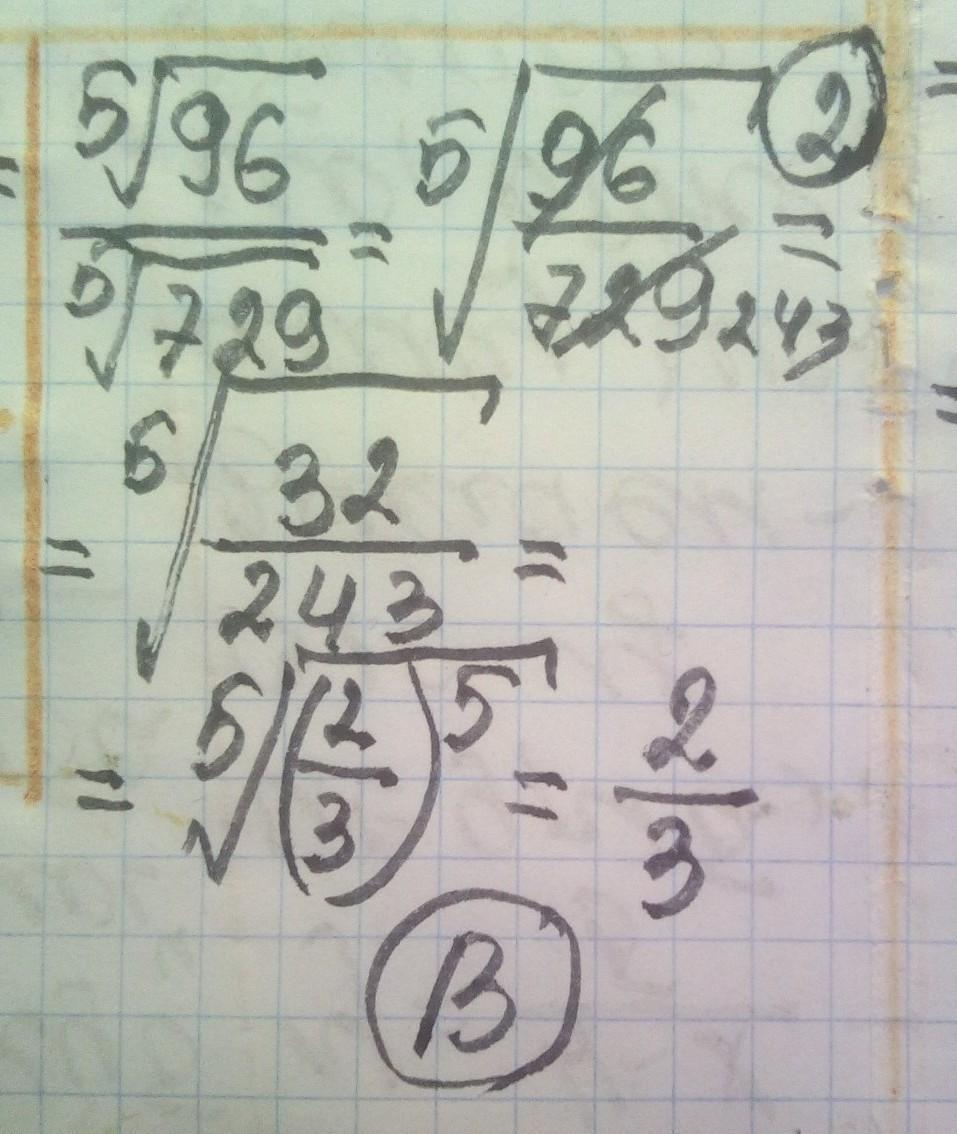 ②
= ⁵√96 / ⁵√729 = ⁵√(96/729 243) =
= ⁵√(32/243) =
= ⁵√(2/3)⁵ = 2/3
B